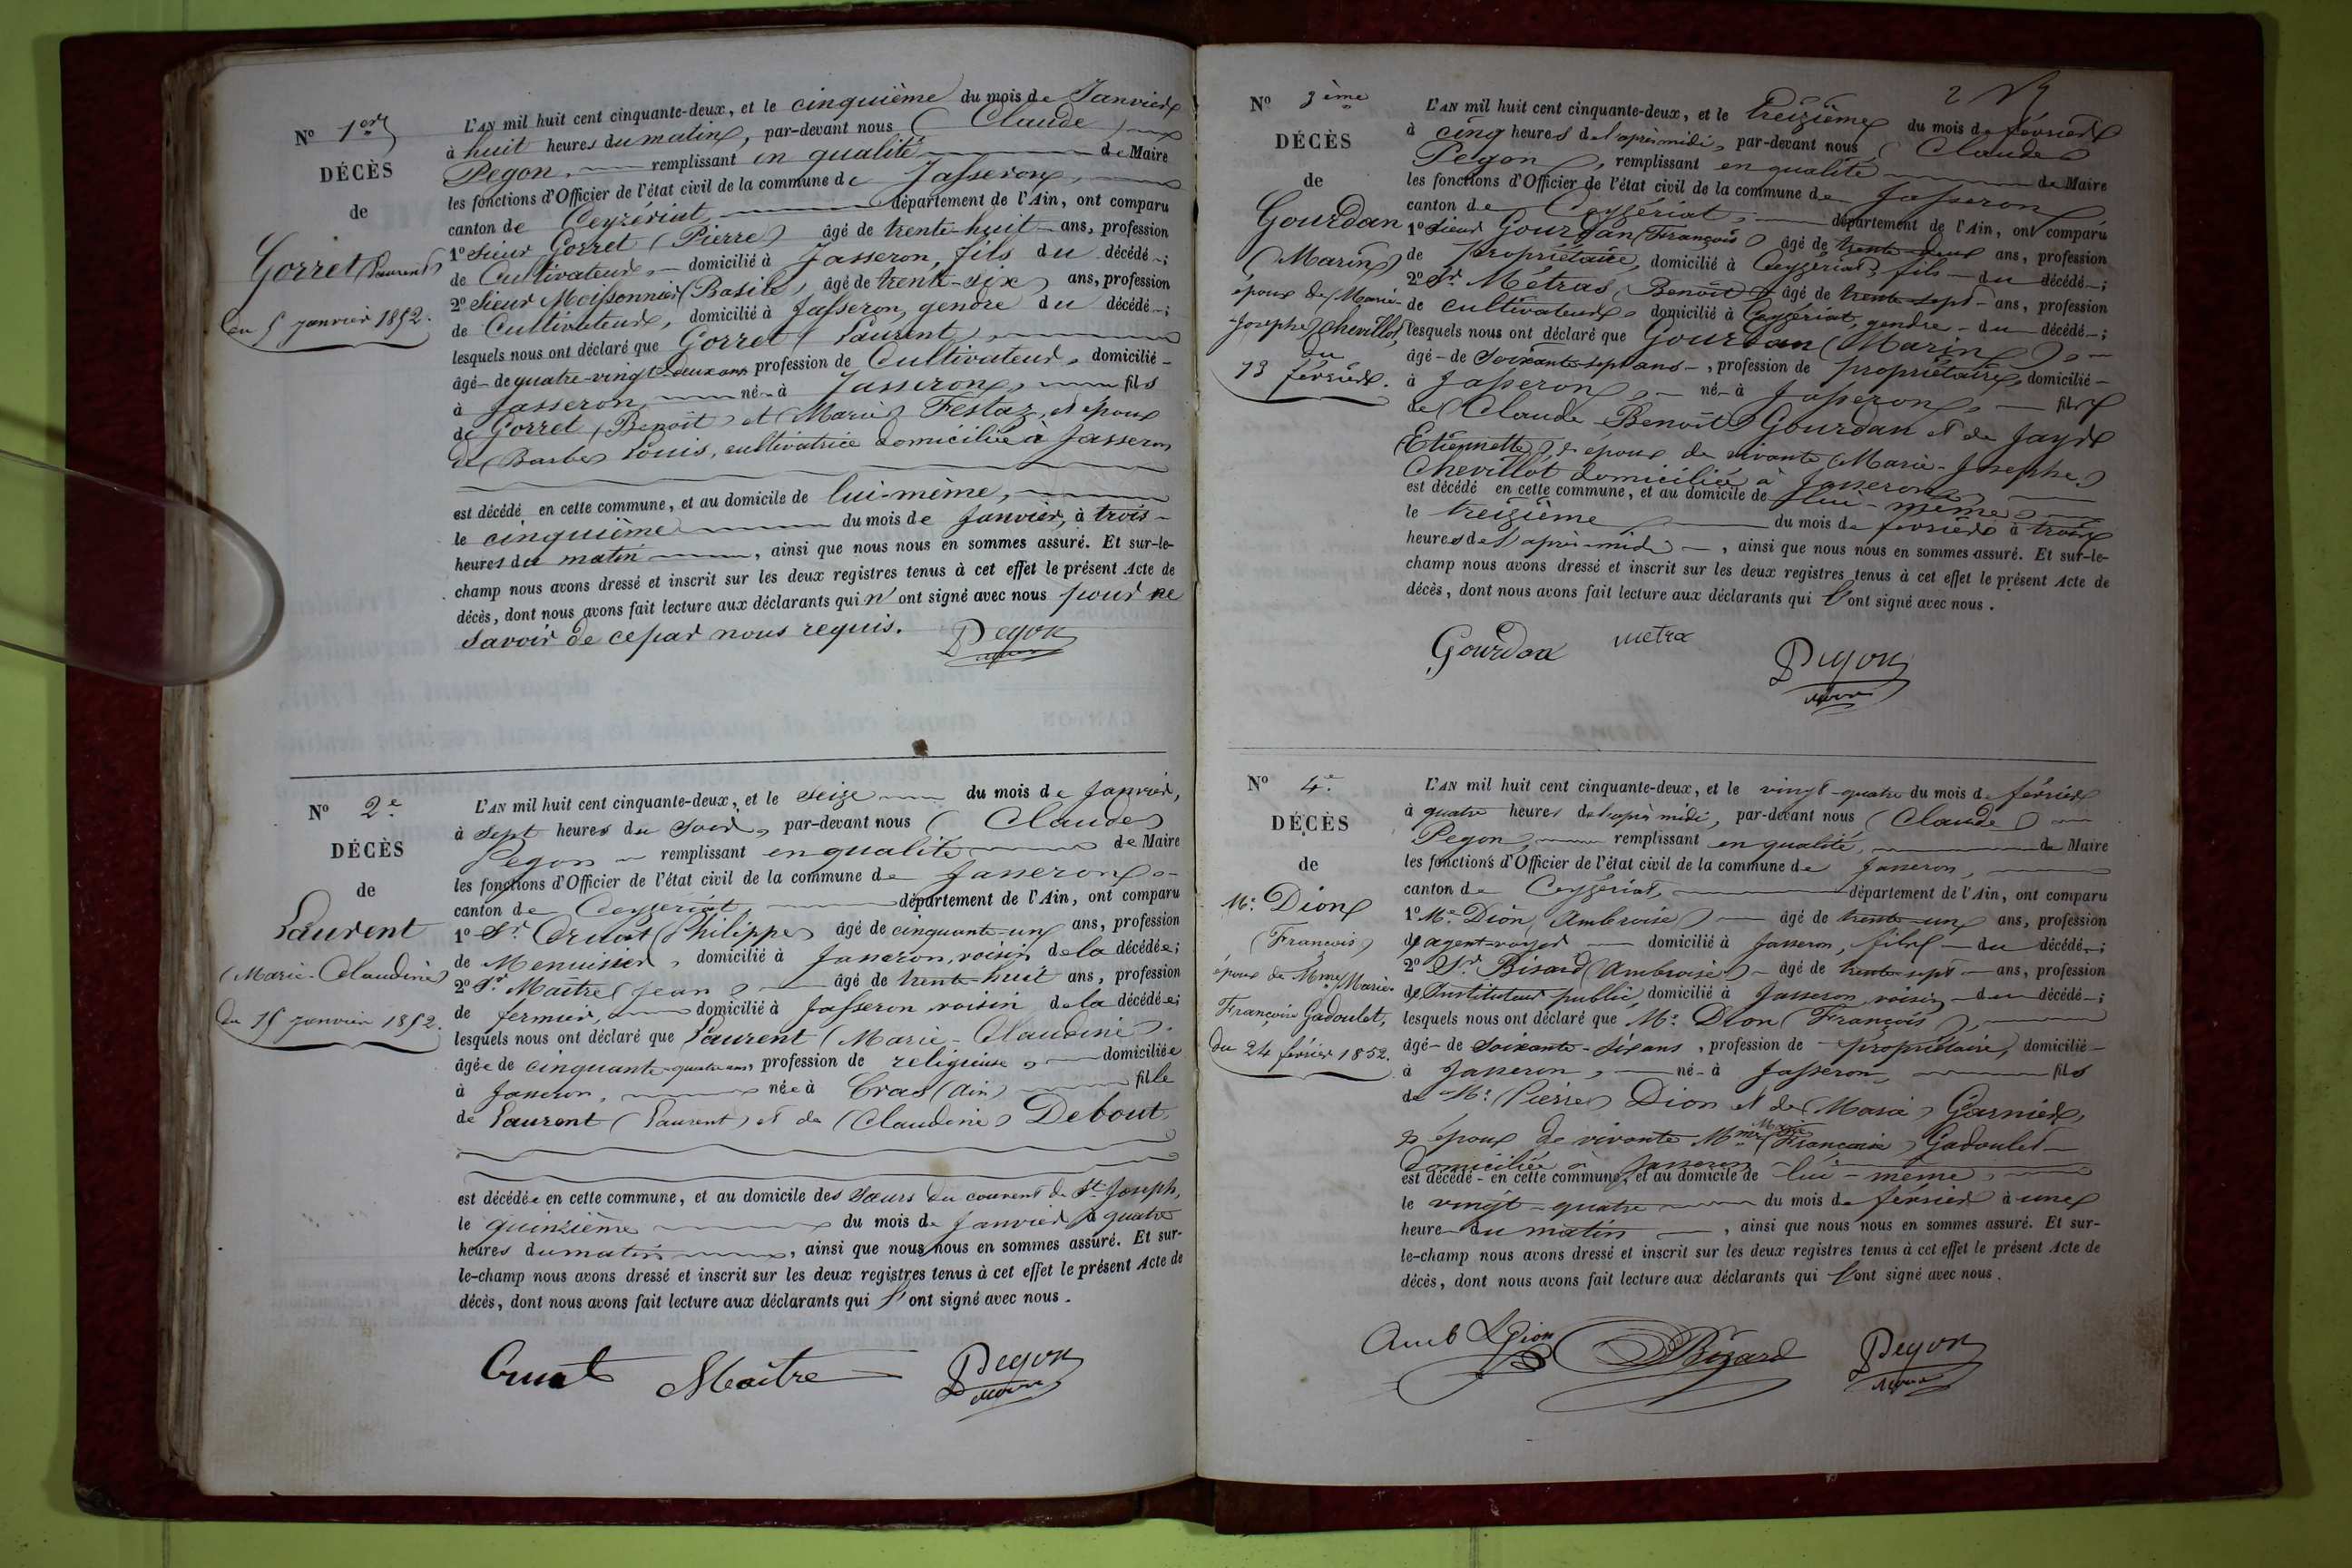 N° 1er
DÉCÈS
de
Gorret (Laurent)
du 5 janvier 1852.
L'AN mil huit cent cinquante-deux, et le cinquième du mois de Janvier
à huit heures du matin, par-devant nous (Claude)
Pegon, remplissant en qualité de Maire
les fonctions d'Officier de l'état civil de la commune de Jasseron,
canton de Ceyzériat, département de l'Ain, ont comparu
1° Sieur Gorret (Pierre) âgé de trente-huit ans, profession
de Cultivateur, domicilié à Jasseron, fils du décédé;
2° Sieur Moissonnier (Basile), âgé de trente-six ans, profession
de Cultivateur, domicilié à Jasseron, gendre du décédé;
lesquels nous ont déclaré que Gorret (Laurent),
âgé de quatre-vingt-deux ans, profession de Cultivateur, domicilié
à Jasseron, né à Jasseron, fils
de Gorret (Benoît) et (Marie) Festaz, et époux
de (Barbe) Louis, cultivatrice domiciliée à Jasseron
est décédé en cette commune, et au domicile de lui-même,
le cinquième du mois de Janvier, à trois
heures du matin, ainsi que nous nous en sommes assuré. Et sur-le-
champ nous avons dressé et inscrit sur les deux registres tenus à cet effet le présent Acte de
décès, dont nous avons fait lecture aux déclarants qui n'ont signé avec nous pour ne
savoir de ce par nous requis.
Pegon
maire
N° 2e
DÉCÈS
de
Laurent
(Marie-Claudine)
du 15 janvier 1852.
L'AN mil huit cent cinquante-deux, et le seize du mois de Janvier,
à sept heures du soir, par-devant nous (Claude)
Pegon remplissant en qualité de Maire
les fonctions d'Officier de l'état civil de la commune de Jasseron
canton de Ceyzériat, département de l'Ain, ont comparu
1° Sr. Cruat (Philippe) âgé de cinquante-un ans, profession
de Menuisier, domicilié à Jasseron, voisin de la décédée;
2° Sr. Maître (Jean) âgé de trente-huit ans, profession
de fermier, domicilié à Jasseron voisin de la décédée;
lesquels nous ont déclaré que Laurent (Marie-Claudine).
âgée de cinquante-quatre ans, profession de religieuse, domiciliée
à Jasseron, née à Cras (Ain) fille
de Laurent (Laurent) et de (Claudine) Debout
est décédée en cette commune, et au domicile des Sœurs du couvent de St. Joseph,
le quinzième du mois de Janvier à quatre
heures du matin, ainsi que nous nous en sommes assuré. Et sur-
le-champ nous avons dressé et inscrit sur les deux registres tenus à cet effet le présent Acte de
décès, dont nous avons fait lecture aux déclarants qui l'ont signé avec nous.
Cruat Maître Pegon
maire
N° 3ème
DÉCÈS
de
Gourdan
(Marin)
époux de (Marie-
Josephe) Chevillot,
du
13 février.
L'AN mil huit cent cinquante-deux, et le treizième du mois de février
à cinq heures de l'après midi, par-devant nous (Claude)
Pegon, remplissant en qualité de Maire
les fonctions d'Officier de l'état civil de la commune de Jasseron
canton de Ceyzériat, département de l'Ain, ont comparu
1° Sieur Gourdan (François) âgé de trente-deux ans, profession
de propriétaire, domicilié à Ceyzériat, fils du décédé;
2° Sr. Métras (Benoît) âgé de trente-sept ans, profession
de cultivateur, domicilié à Ceyzériat, gendre du décédé;
lesquels nous ont déclaré que Gourdan (Marin)
âgé de soixante-sept ans, profession de propriétaire, domicilié
à Jasseron, né à Jasseron, fils
de (Claude-Benoît) Gourdan et de Jayr
(Etiennette), & époux de vivante (Marie-Josephe)
Chevillot domiciliée à Jasseron
est décédé en cette commune, et au domicile de lui-même,
le treizième du mois de février à trois
heures de l'après-midi, ainsi que nous nous en sommes assuré. Et sur-le-
champ nous avons dressé et inscrit sur les deux registres tenus à cet effet le présent Acte de
décès, dont nous avons fait lecture aux déclarants qui l'ont signé avec nous.
Gourdan metra Pegon
maire
N° 4e.
DÉCÈS
de
Mr. Dion
(François)
époux de Mme (Marie-
Françoise Gadoulet,
du 24 février 1852.
L'AN mil huit cent cinquante-deux, et le vingt-quatre du mois de février
à quatre heures de l'après midi, par-devant nous (Claude)
Pegon, remplissant en qualité, de Maire
les fonctions d'Officier de l'état civil de la commune de Jasseron,
canton de Ceyzériat, département de l'Ain, ont comparu
1° Mr. Dion (Ambroise) âgé de trente-un ans, profession
d'agent-voyer domicilié à Jasseron, fils du décédé;
2° Sr. Bisard (Ambroise) âgé de trente-sept ans, profession
d'Instituteur public, domicilié à Jasseron, voisin du décédé;
lesquels nous ont déclaré que Mr. Dion (François),
âgé de soixante-six ans, profession de propriétaire, domicilié
à Jasseron, né à Jasseron, fils
de Mr. (Pierre) Dion et de (Marie) Garnier,
& époux de vivante Mme (Marie Françoise) Gadoulet
domiciliée à Jasseron
est décédé en cette commune, et au domicile de lui-même,
le vingt-quatre du mois de février à une
heure du matin, ainsi que nous nous en sommes assuré. Et sur-
le-champ nous avons dressé et inscrit sur les deux registres tenus à cet effet le présent Acte de
décès, dont nous avons fait lecture aux déclarants qui l'ont signé avec nous.
Amb Dion Bizard Pegon
maire